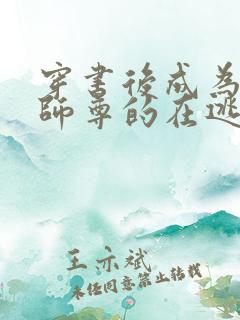 穿书後成为
师尊的在逃
王亦斌
未经同意禁止转载